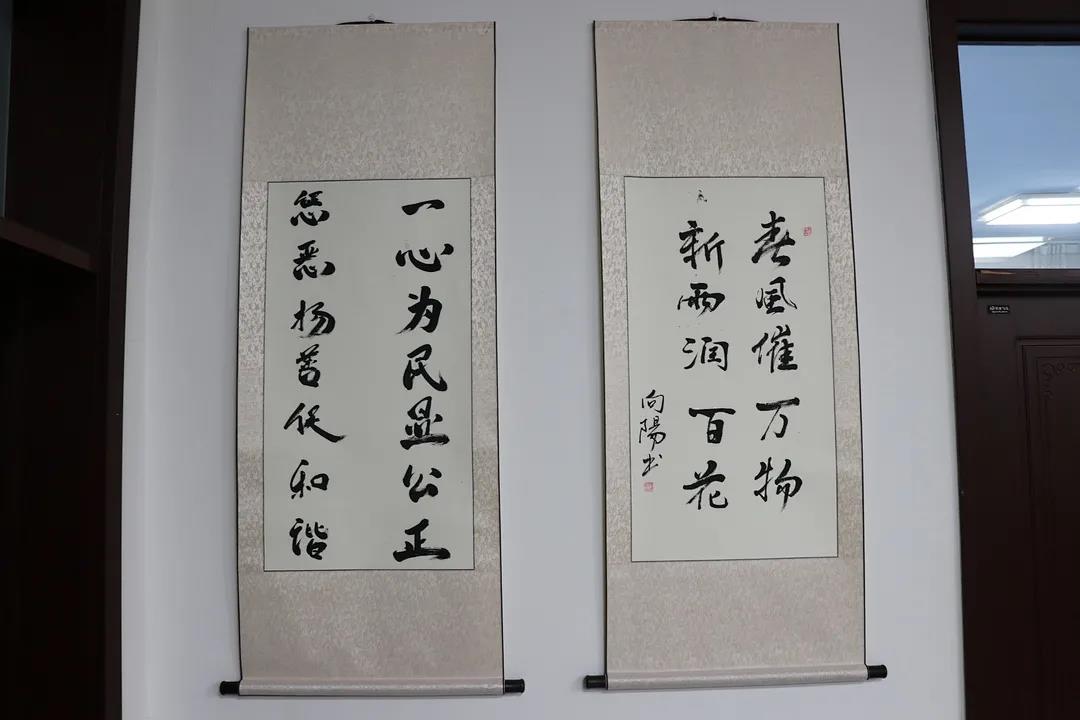 一心为民显公正
惩恶扬善促和谐
春風催万物
新雨润百花
向陽书